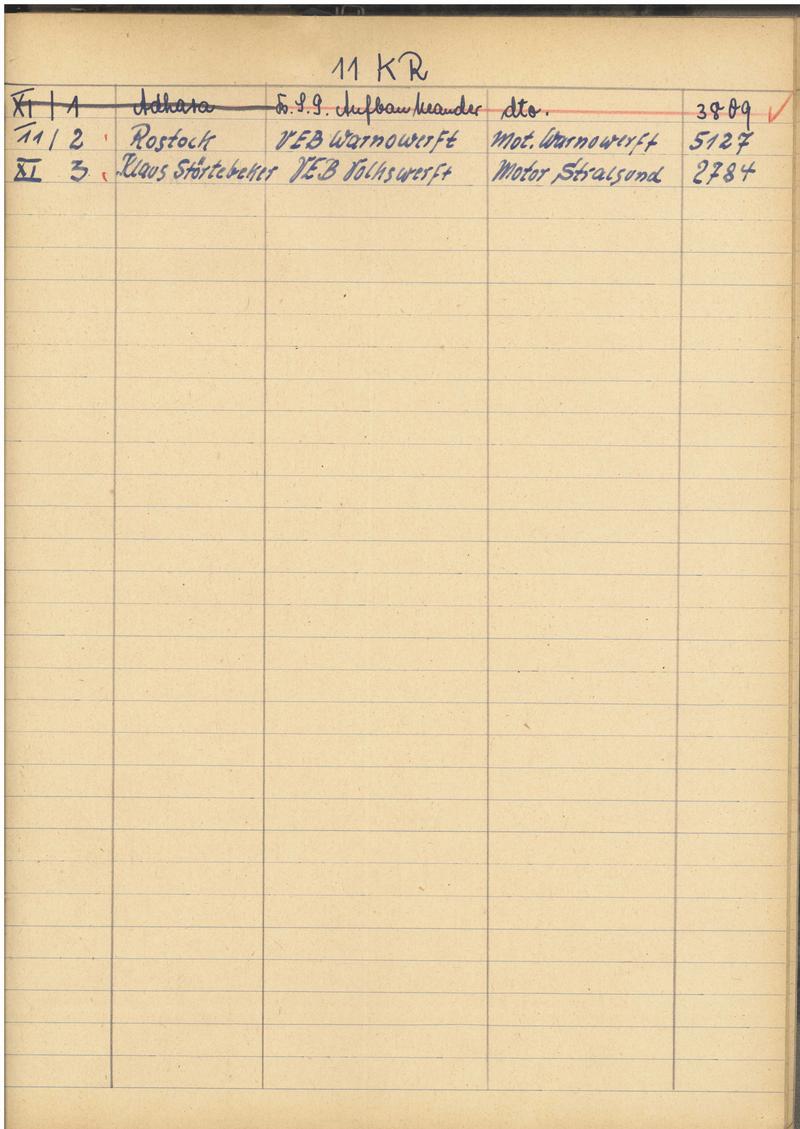 11 KR
XI / 1 Adhara B.S.G. Aufbau dto. 3809
11 / 2 Rostock VEB Warnowerft Mot. Warnowerft 5127
XI 3 Klaus Störtebeker VEB Volkswerft Motor Stralsund 2784